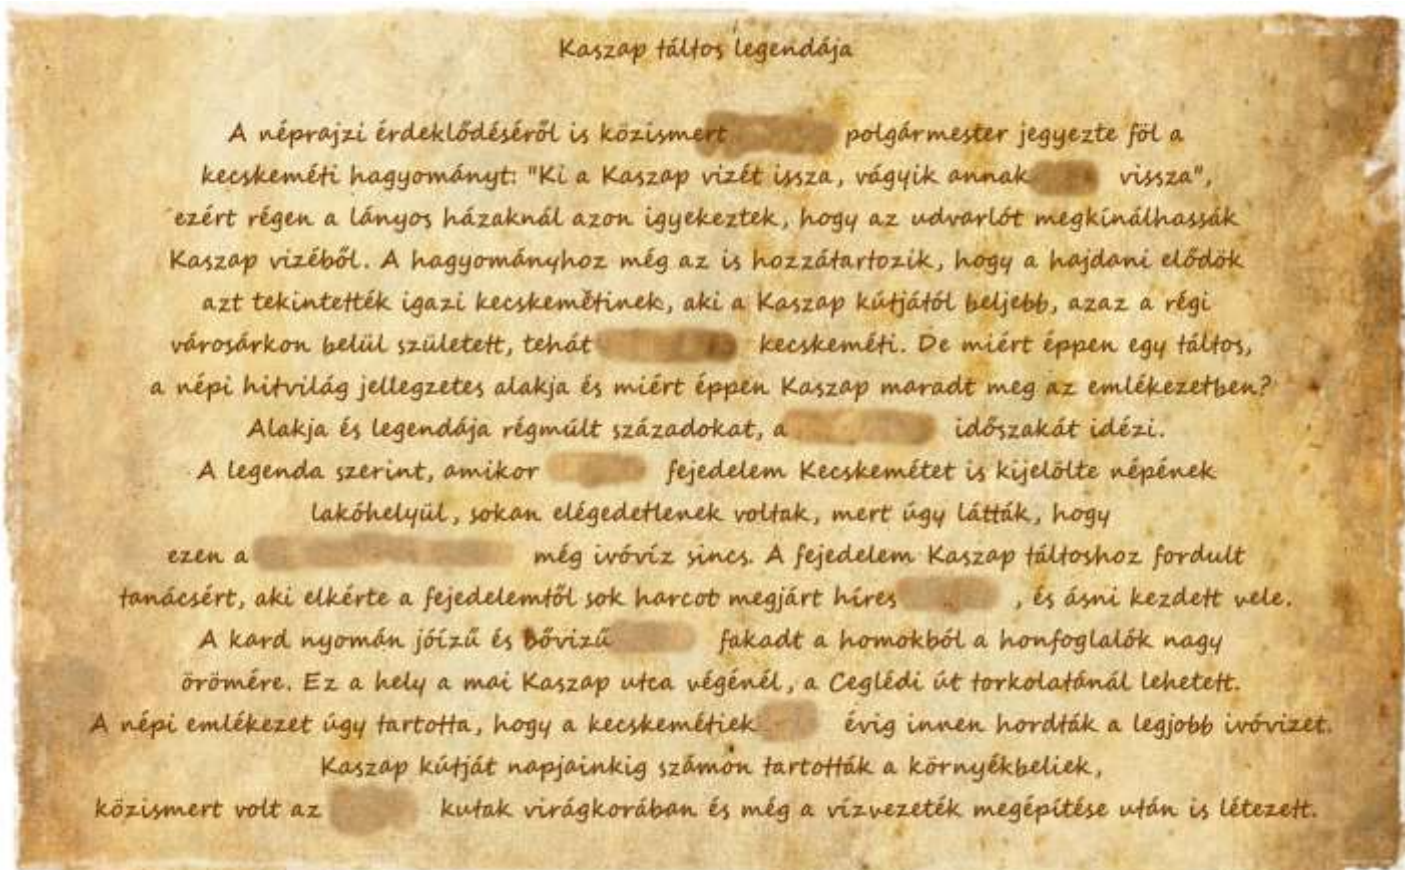 Kaszap táltos legendája
A néprajzi érdeklődéséről is közismert polgármester jegyezte föl a
kecskeméti hagyományt: "Ki a Kaszap vizét issza, vágyik annak vissza",
ezért régen a lányos házaknál azon igyekeztek, hogy az udvarlót megkínálhassák
Kaszap vizéből. A hagyományhoz még az is hozzátartozik, hogy a hajdani elődök
azt tekintették igazi kecskemétinek, aki a Kaszap kútjától beljebb, azaz a régi
városárkon belül született, tehát kecskeméti. De miért éppen egy táltos,
a népi hitvilág jellegzetes alakja és miért éppen Kaszap maradt meg az emlékezetben?
Alakja és legendája régmúlt századokat, a időszakát idézi.
A legenda szerint, amikor fejedelem Kecskemétet is kijelölte népének
lakóhelyül, sokan elégedetlenek voltak, mert úgy látták, hogy
ezen a még ivóvíz sincs. A fejedelem Kaszap táltoshoz fordult
tanácsért, aki elkérte a fejedelemtől sok harcot megjárt híres , és ásni kezdett vele.
A kard nyomán jóízű és bővizű fakadt a homokból a honfoglalók nagy
örömére. Ez a hely a mai Kaszap utca végénél, a Ceglédi út torkolatánál lehetett.
A népi emlékezet úgy tartotta, hogy a kecskemétiek évig innen hordták a legjobb ivóvizet.
Kaszap kútját napjainkig számon tartották a környékbeliek,
közismert volt az kutak virágkorában és még a vízvezeték megépítése után is létezett.